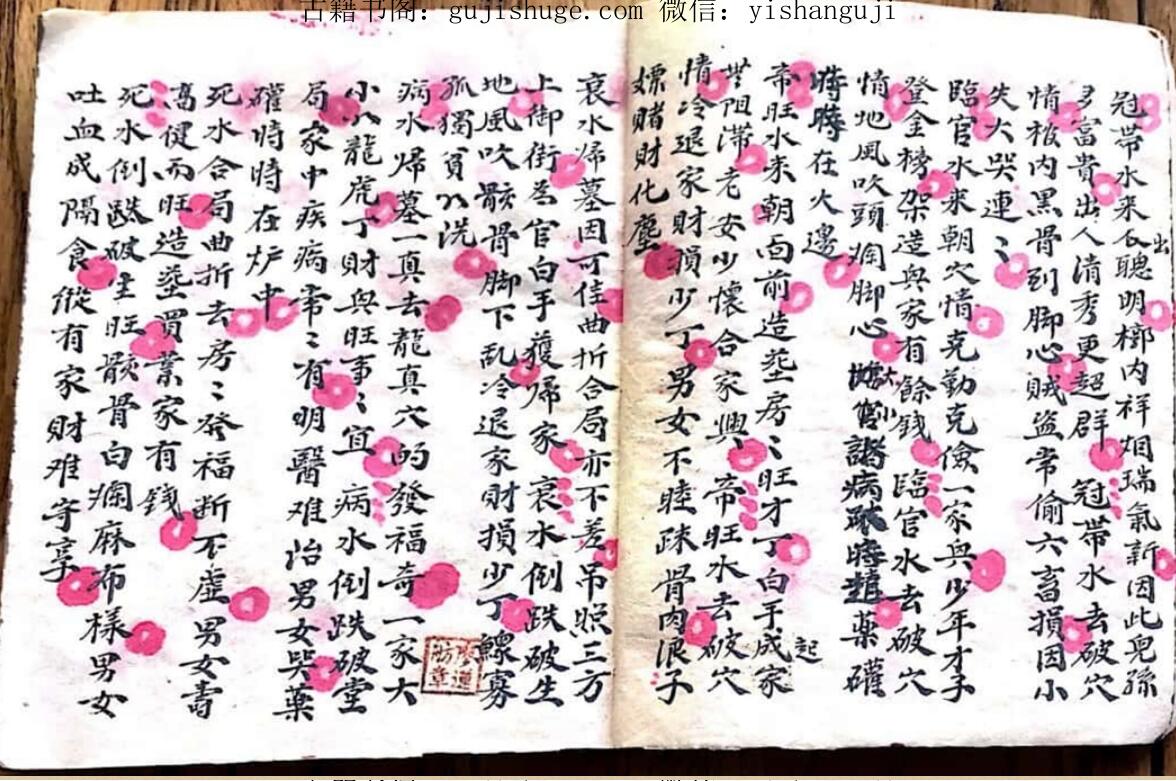 古籍书阁：gujishuge.com 微信：yishanguji
冠帶水来衣聰明槨内祥烟瑞氣新因此兒孫
多富貴出人清秀更超群 冠帶水去破穴
出
情棺内黑骨到脚心賊盗常偷六畜損因小
失大哭連〻
臨官水来朝穴情克勤克儉一家與少年才子
登金榜架造與家有餘錢 臨官水去破穴
情地風吹頭痾脚心 官諸病 藥礶
時時在火邊
帝旺水来朝面前造塟房〻旺才丁白手成家
起
無阻滯老安少懷合家興帝旺水去破穴
情冷退家財損少丁男女不睦疎骨肉浪子
嫖賭財化塵
衰水歸墓因可佳曲折合局亦不差吊照三方
上御街為官白手獲歸家 衰水倒跌破生
地風吹骸骨脚下乱冷退家財損少丁鰥寡
孤獨貧以洗
病水歸墓一真去龍真穴的發福奇一家大
小以龍虎丁財與旺事〻宜 病水倒跌破堂
局家中疾病常〻有明醫难治男女哭藥
礶時時在炉中
死水合局曲折去房〻發福断不虚男女壽
高健而旺造塟買業家有錢
死水倒跌破生旺骸骨白痾麻布樣男女
吐血成隔食縱有家財难守享